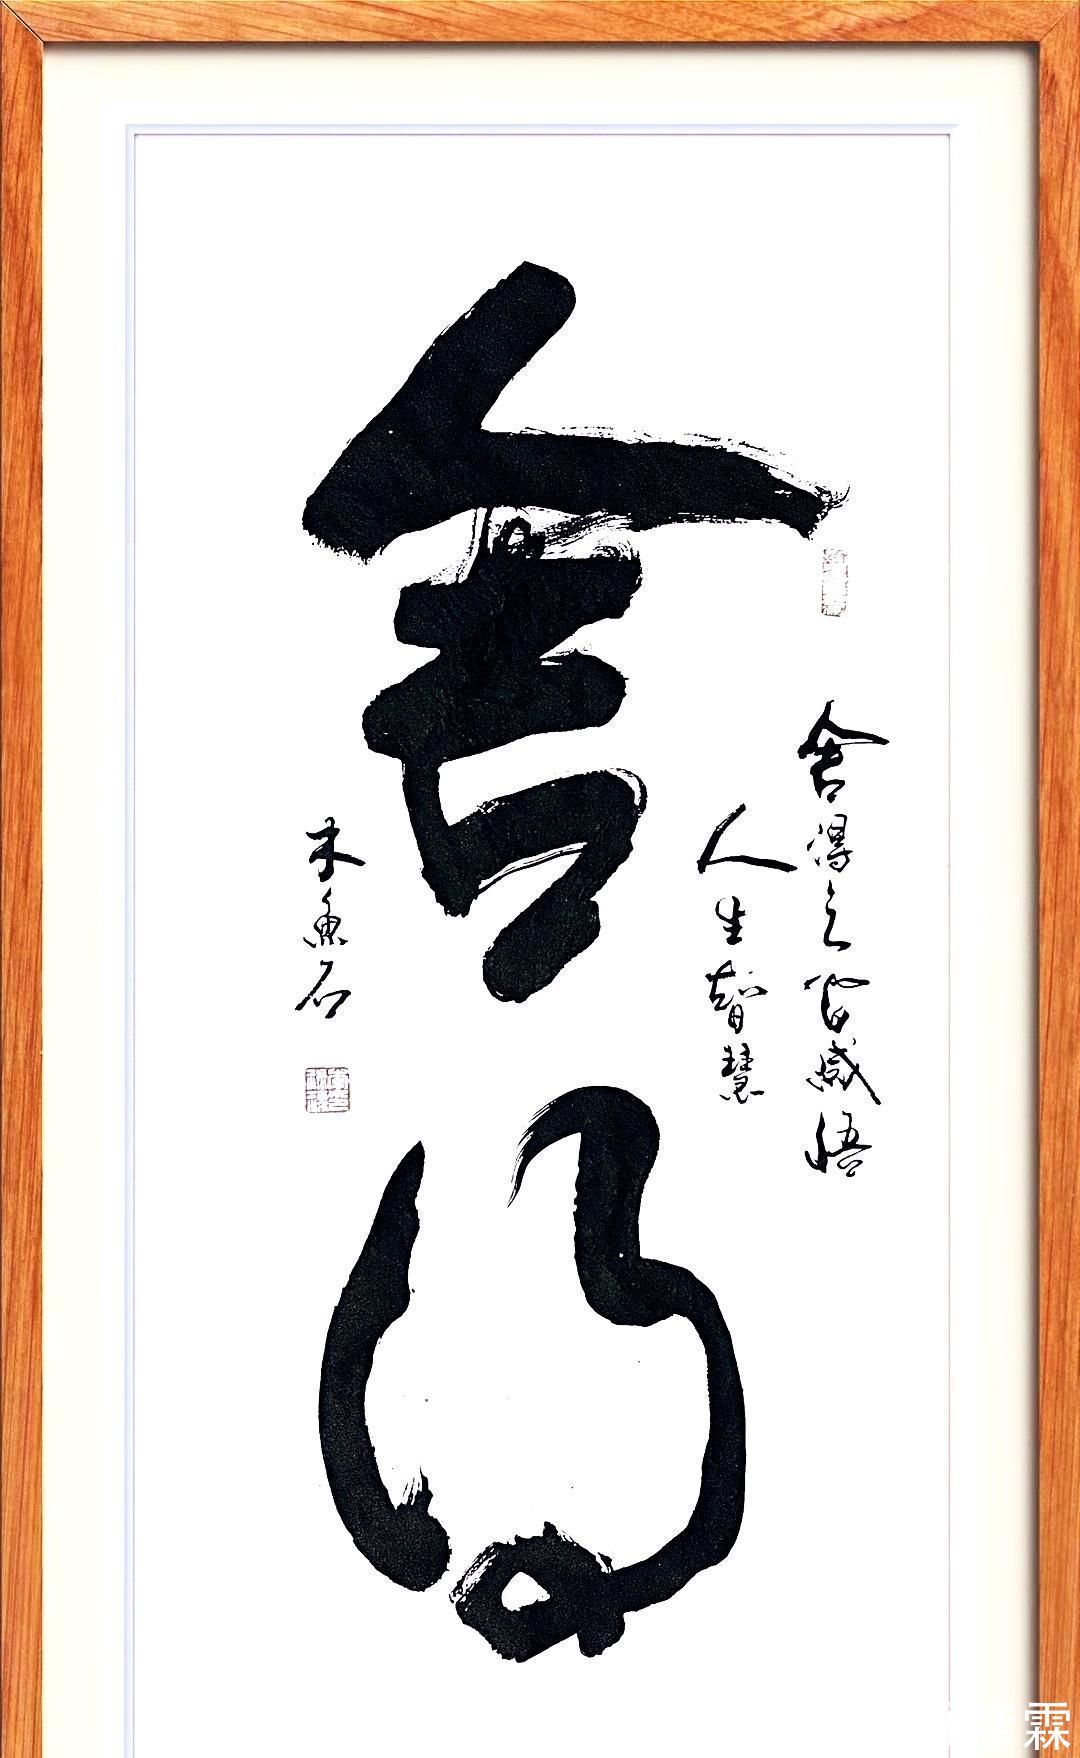 舍得
舍得之间感悟
人生智慧
木鱼石
霖